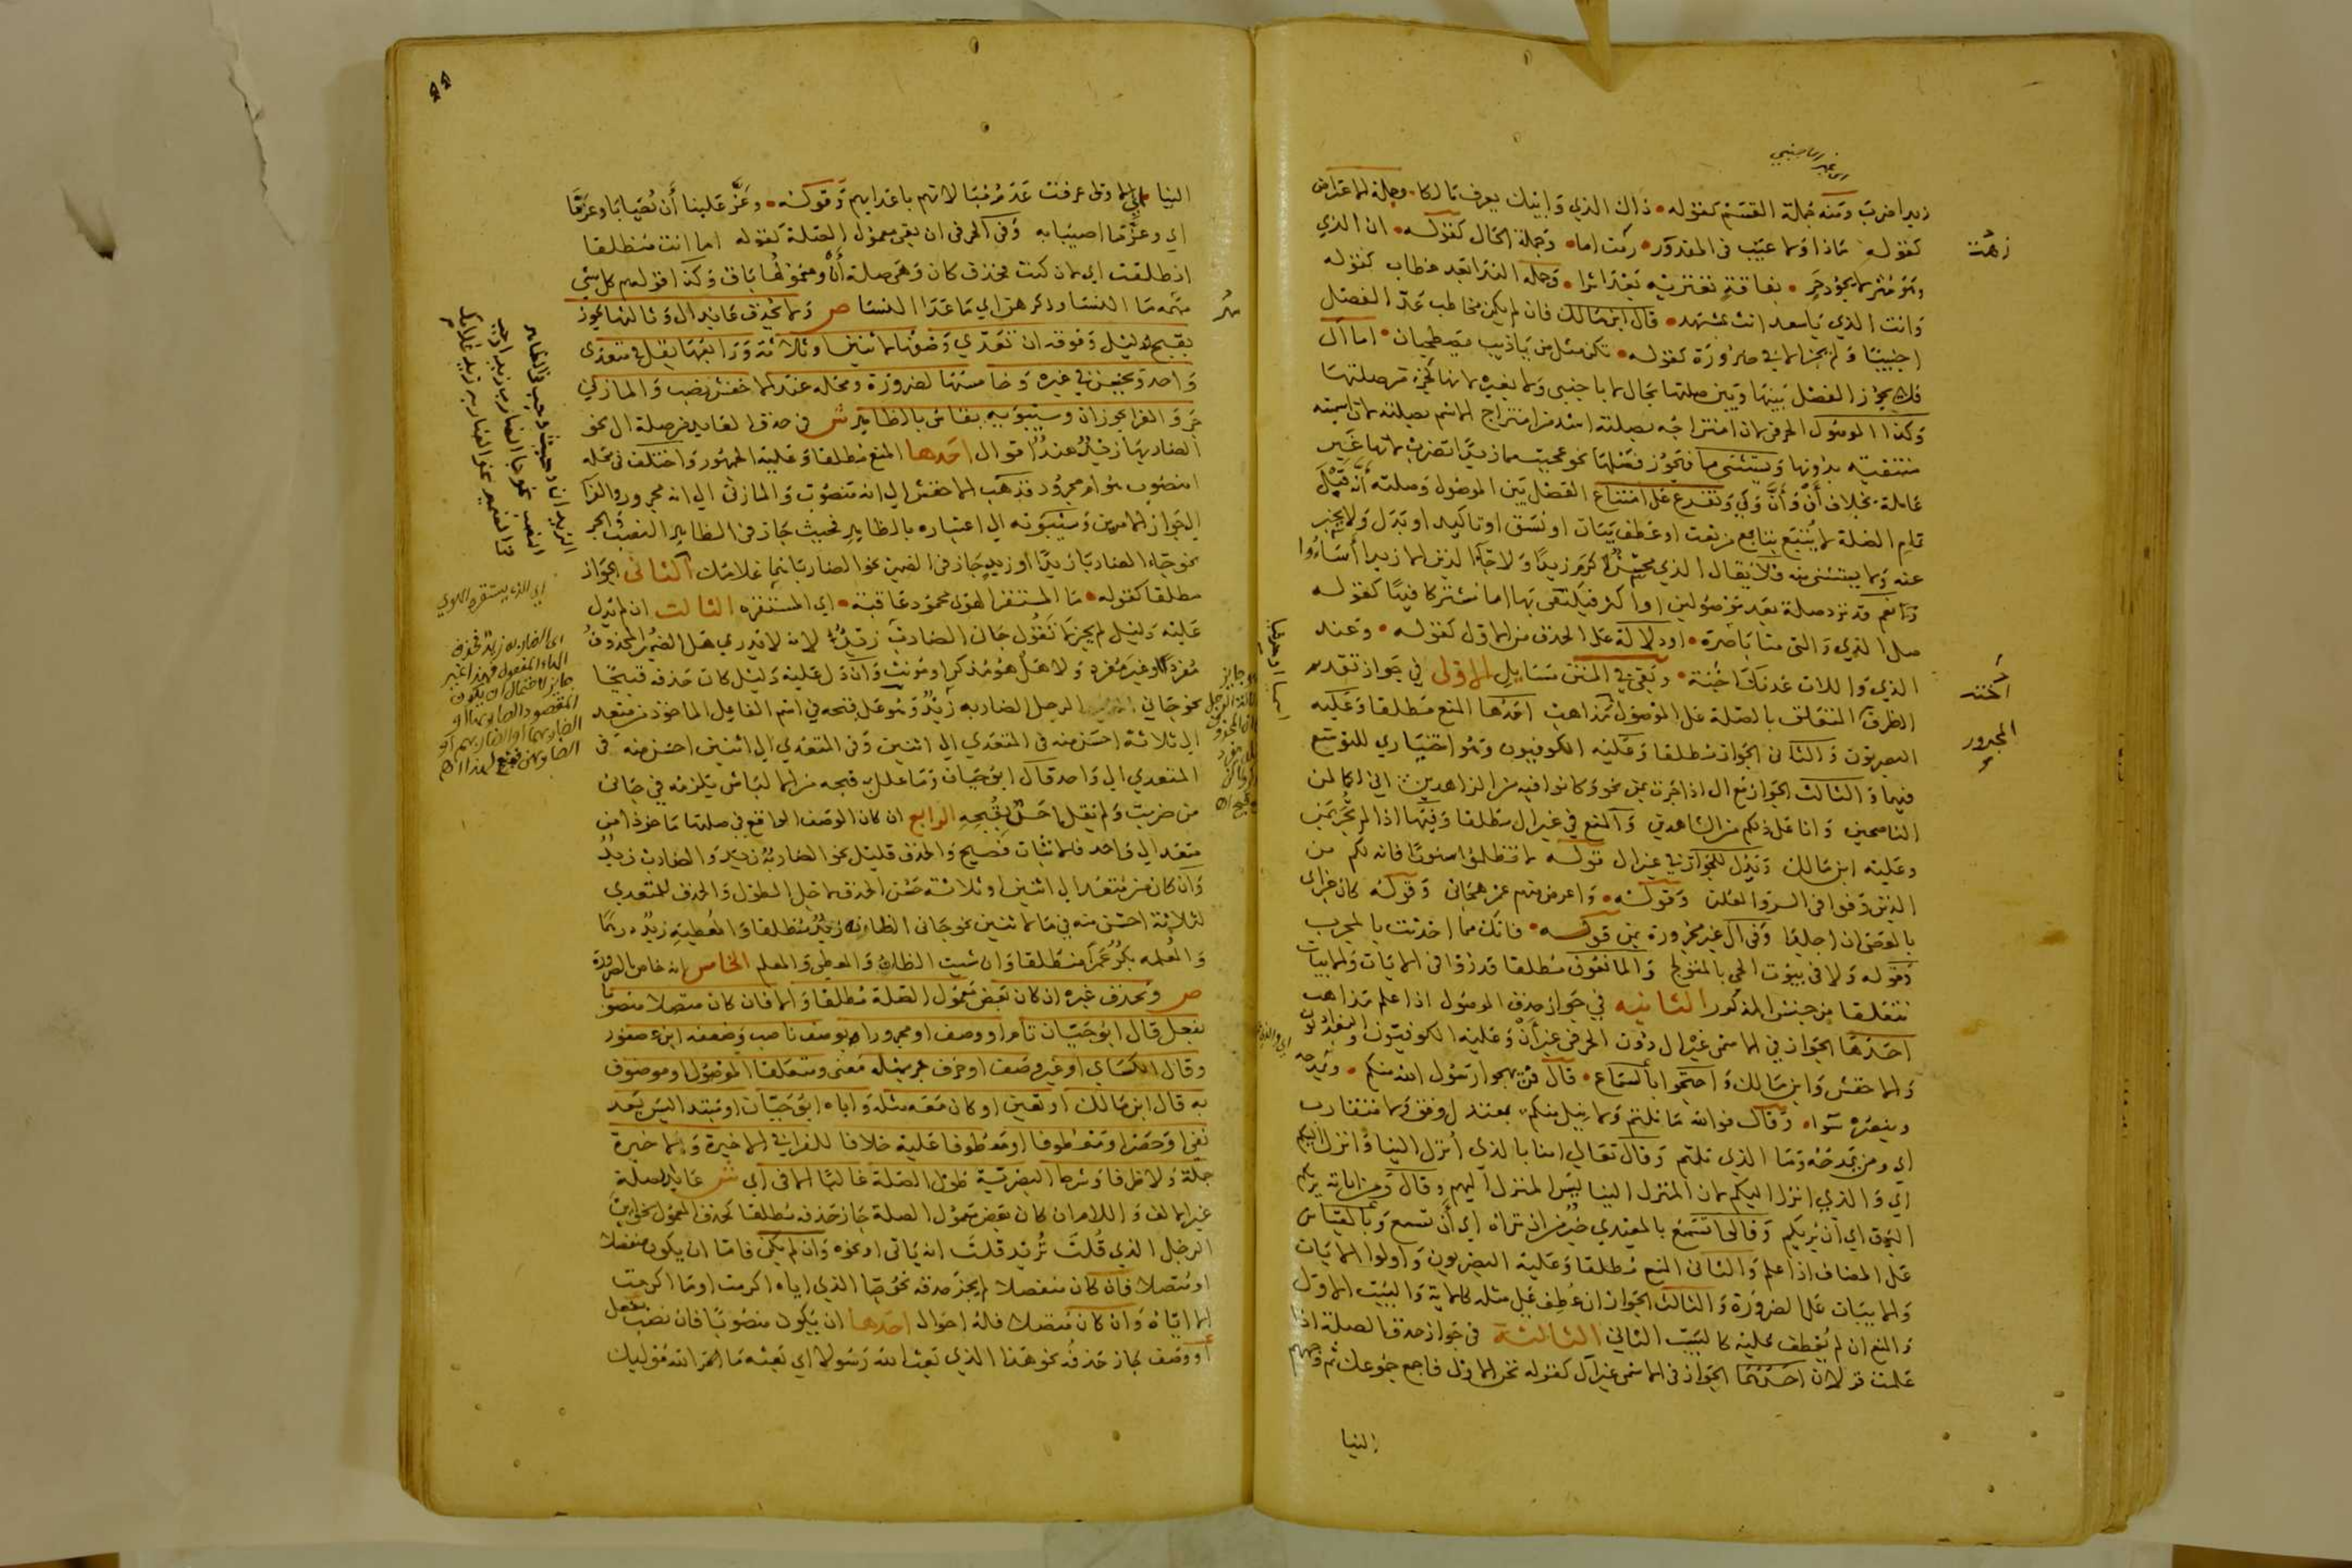 زيدا ضربت ومنه جملة القسم كقوله • ذاك الذي وابيك يعرف مالكا • وجملة الاعتراض
كقوله ماذا ولا عتب في المقدور • رمت اما • وجملة الحال كقوله • ان الذي
وهو مثر لا يجود حر • بفاقة تعتريه بعد اثرا • وجملة الندا بعد خطاب كقوله
وانت الذي يا سعد انت بمشهد • قال ابن مالك فان لم يكن مخاطب عد الفصل
اجنبيا ولم يجز الا في ضرورة كقوله • تكن مثل من يا ذيب يصطحبان • اما ال
فلا يجوز الفصل بينها وبين صلتها بحال لا باجنبي ولا بغيره لانها كجزء من صلتها
وكذا الموصول الحرفي لان امتزاجه بصلته اشد من امتزاج الاسم بصلته لان اسميته
منتفية بدونها ويستثنى ما فيجوز فصلها نحو عجبت مما زيدا تضرب لانها غير
عاملة بخلاف أن وأنّ وكي وتفرع على امتناع الفصل بين الموصول وصلته أنه قبل
تمام الصلة لا يتبع بتابع من نعت او عطف بيان او نسق او تاكيد او بدل ولا يخبر
عنه ولا يستثنى منه فلا يقال الذي محسن اكرم زيدا ولا جاء الذين الا زيدا أساءوا
نعم قد ترد صلة بعد موصولين او اكثر فيكتفى بها اما مشتركا فيها كقوله
صل الذي والتي متا باصرة • او دلالة على الحذف من الاول كقوله • وعند
الذي واللات عدنك احنة • وبقي في المتن مسايل الاولى في جواز تقديم
الظرف المتعلق بالصلة على الموصول مذاهب احدها المنع مطلقا وعليه
البصريون والثاني الجواز مطلقا وعليه الكوفيون وهو اختياري للتوسع
فيهما والثالث الجواز مع ال اذا جرت بمن نحو وكانوا فيه من الزاهدين اني لكما لمن
الناصحين وانا على ذلكم من الشاهدين والمنع في غير ال مطلقا وفيها اذا لم تجر بمن
وعليه ابن مالك ويدل للجواز في غير ال قوله لا تظلموا مسورا فانه لكم من
الذين وفوا في السر والعلن وقوله • واعرض منهم عمن هجاني وقوله كان جزاي
بالعصى ان اجلدا وفي ال غير مجرورة بمن قوله • فانك مما احدثت بالمجرب
وقوله ولا في بيوت الحي بالمتولج والمانعون مطلقا قدروا في الايات والابيات
متعلقا من جنس المذكور الثانيه في جواز حذف الموصول اذا علم مذاهب
احدها الجواز في الاسمي غير ال دون الحرفي غير أن وعليه الكوفيون والبغداديون
والاخفش وابن مالك واحتجوا بالسماع • قال فمن يهجوا رسول الله منكم • ويمدحه
وينصره سوا • وقال فوالله ما نلتم ولا نيل منكم • بمعتدل وفق ولا متقارب
اي ومن يمدحه وما الذي نلتم وقال تعالى امنا بالذي أنزل الينا وانزل اليكم
اي والذي انزل اليكم لان المنزل الينا ليس المنزل اليهم وقال ومن اياته يريكم
البرق اي ان يريكم وقالوا تسمع بالمعيدي خير من ان تراه اي أن تسمع وبالقياس
على المضاف اذا علم والثاني المنع مطلقا وعليه البصريون واولوا الايات
والابيات على الضرورة والثالث الجواز ان عطف على مثله كالاية والبيت الاول
والمنع ان لم يعطف عليه كالبيت الثاني الثالثة في جواز حذف الصلة اذا
علمت قولان احدهما الجواز في الاسمي غير ال كقوله نحن الاولى فاجمع جموعك ثم وجههم
الينا
اي غير الاجنبي
احنة
المجرور
الينا اي الاولى عرفت عدم مبالاتهم باعدايهم وقوله • وعز علينا أن يصابا وعزما
اي وعز ما اصيبا به وفي الحرفي ان بقي معمول الصلة كقوله اما انت منطلقا
انطلقت اي لان كنت فحذف كان وهي صلة أن ومعمولها باق وكذا قولهم كل شي
مهمه ما النسا وذكرهن اي ما عدا النسا ص ولا يحذف عايد ال وثالثها يجوز
بقبح لدليل وفوقه ان تعدي وصفها لاثنين او ثلاثة ورابعها يقل في متعدي
واحد ويحسن في غيره وخامسها لضرورة ومحله عند الاخفش نصب والمازني
جر والفرا يجوزان وسيبويه يقاس بالظاهر ش في حذف العايد من صلة ال نحو
الضاربها زيد هند اقوال احدها المنع مطلقا وعليه الجمهور واختلف في محله
امنصوب هو ام مجرور فذهب الاخفش الى انه منصوب والمازني الى انه مجرور والفرا
الى جواز الامرين وسيبويه الى اعتباره بالظاهر فحيث جاز في الظاهر النصب والجر
نحو جاء الضاربا زيدا او زيد جاز في الضمير نحو الضارباهما غلامك الثاني الجواز
مطلقا كقوله • ما المستفز الهوى محمود عاقبة • اي المستفزه الثالث ان لم يدل
عليه دليل لم يجز لا تقول جاني الضارب زيد لانه لا يدري هل الضمير المحذوف
مفرد او غير مفرد ولا هل هو مذكر او مونث وان دل عليه دليل كان حذفه قبيحا
نحو جاني الرجل الضاربه زيد وهو على قبحه في اسم الفاعل الماخوذ من متعد
الى ثلاثة احسن منه في المتعدي الى اثنين وفي المتعدي الى اثنين احسن منه في
المتعدي الى واحد قال ابو حيان وما علل به قبحه من الالباس يلزمه في جاني
من ضربت ولم نقل احد بقبحه الرابع ان كان الوصف الواقع في صلتها ماخوذا من
متعد الى واحد فالاثبات فصيح والحذف قليل نحو الضاربه زيد والضارب زيد
وان كان من متعد الى اثنين او ثلاثة حسن الحذف لاجل الطول والحذف للمتعدي
لثلاثة احسن منه في الاثنين نحو جاني الظانه زيد منطلقا والمعطيه زيد درهما
والمعلمه بكر عمرا منطلقا وان شيت الظان والمعطي والمعلم الخامس انه خاص بالضرورة
ص ويحذف غيره ان كان بعض معمول الصلة مطلقا والا فان كان متصلا منصوبا
بفعل قال ابو حيان تام او وصف او مجرورا بوصف ناصب وضعفه ابن عصفور
وقال الكساي او غير وصف او حرف جر بمثله معنى ومتعلقا الموصول او موصوف
به قال ابن مالك او تعين او كان معه مثله واباه ابو حيان او مبتدا ليس بعد
نفي او حصر او معطوفا او معطوفا عليه خلافا للفرا في الاخيرة ولا خبره
جملة ولا ظرفا وشرط البصرية طول الصلة غالبا الا في اي ش عايد الصلة
غير الالف واللام ان كان بعض معمول الصلة جاز حذفه مطلقا كحذف المعمول نحو اين
الرجل الذي قلت تريد قلت انه ياتي او نحوه وان لم يكن فاما ان يكون منفصلا
او متصلا فان كان منفصلا لم يجز حذفه نحو جا الذي اياه اكرمت او ما اكرمت
الا اياه وان كان متصلا فله احوال احدها ان يكون منصوبا فان نصب بفعل
أو وصف جاز حذفه نحو هذا الذي بعث الله رسولا اي بعثه ما الله موليك
اي الذي يستفزه الهوى